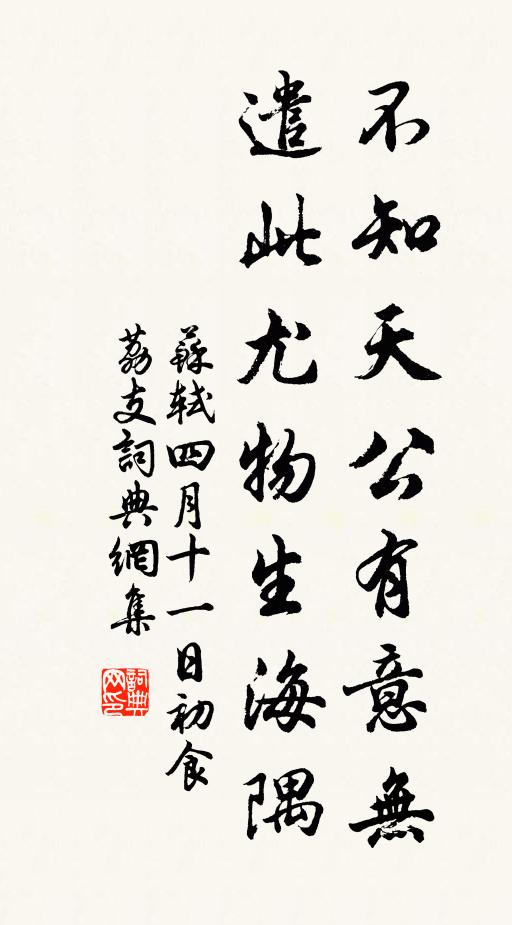 不知天公有意無
遣此尤物生海隅
蘇軾四月十一日初食
荔支詞典網集
詞典
网印